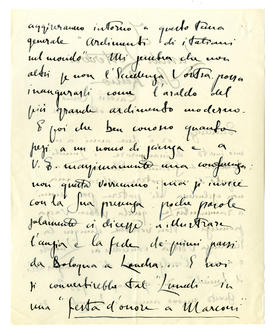 aggireranno intorno a questo tema
generale "Ardimenti di italiani
nel mondo". Mi sembra che non
altri se non l'Eccellenza Vostra possa
inaugurarli come l'araldo del
più grande ardimento moderno.
E poi che ben conosco quanto
pesi a un uomo di scienza e a
V. E. massimamente una conferenza
non questa vorremmo noi se invece
con la Sua presenza poche parole
solamente ci dicesse a illustrare
l'ansia e la fede dei primi passi
da Bologna a Londra... E noi
si convertirebbe tal "Lunedì" in
una "festa d'onore a Marconi"